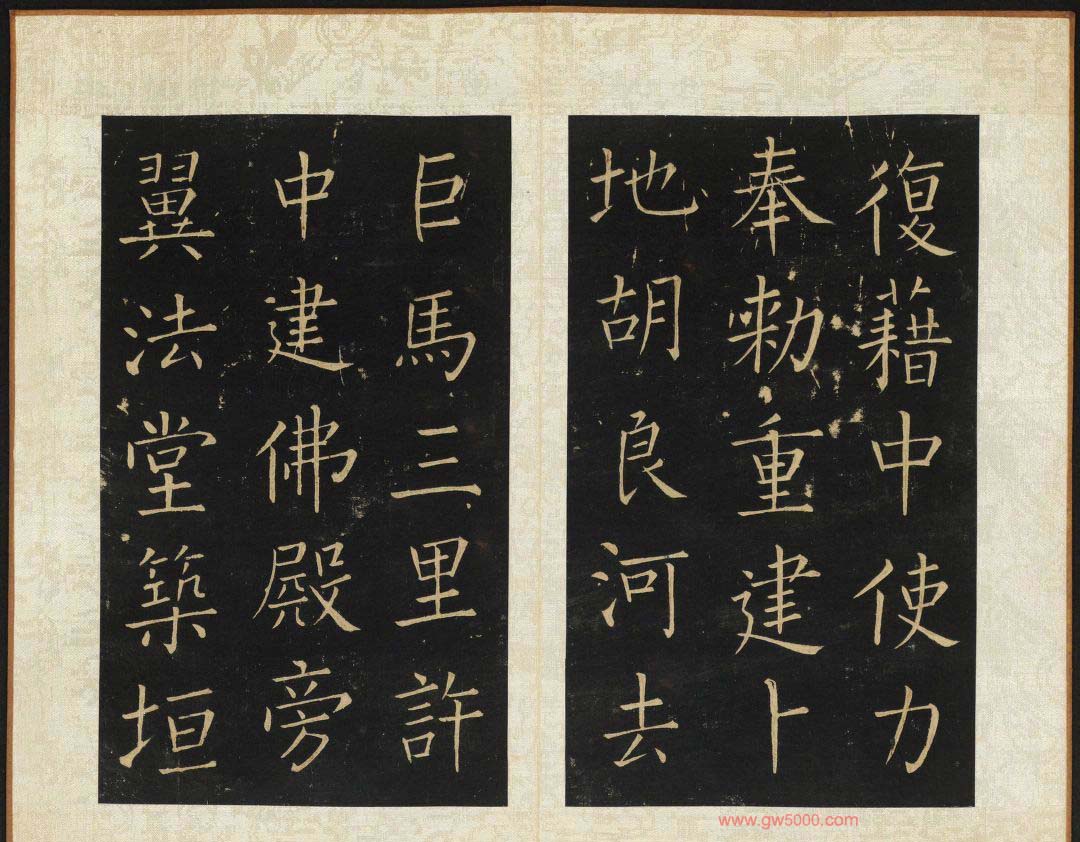 復藉中使力
奉勅重建卜
地胡良河去
巨馬三里許
中建佛殿旁
翼法堂築垣
www.gw5000.com